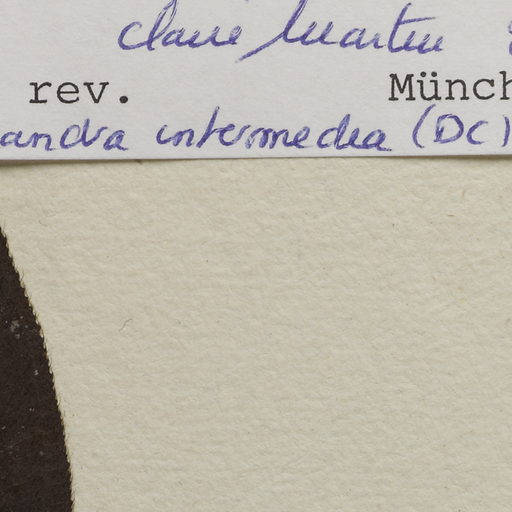 Claire Martin
rev. Münch
andra intermedia (DC)